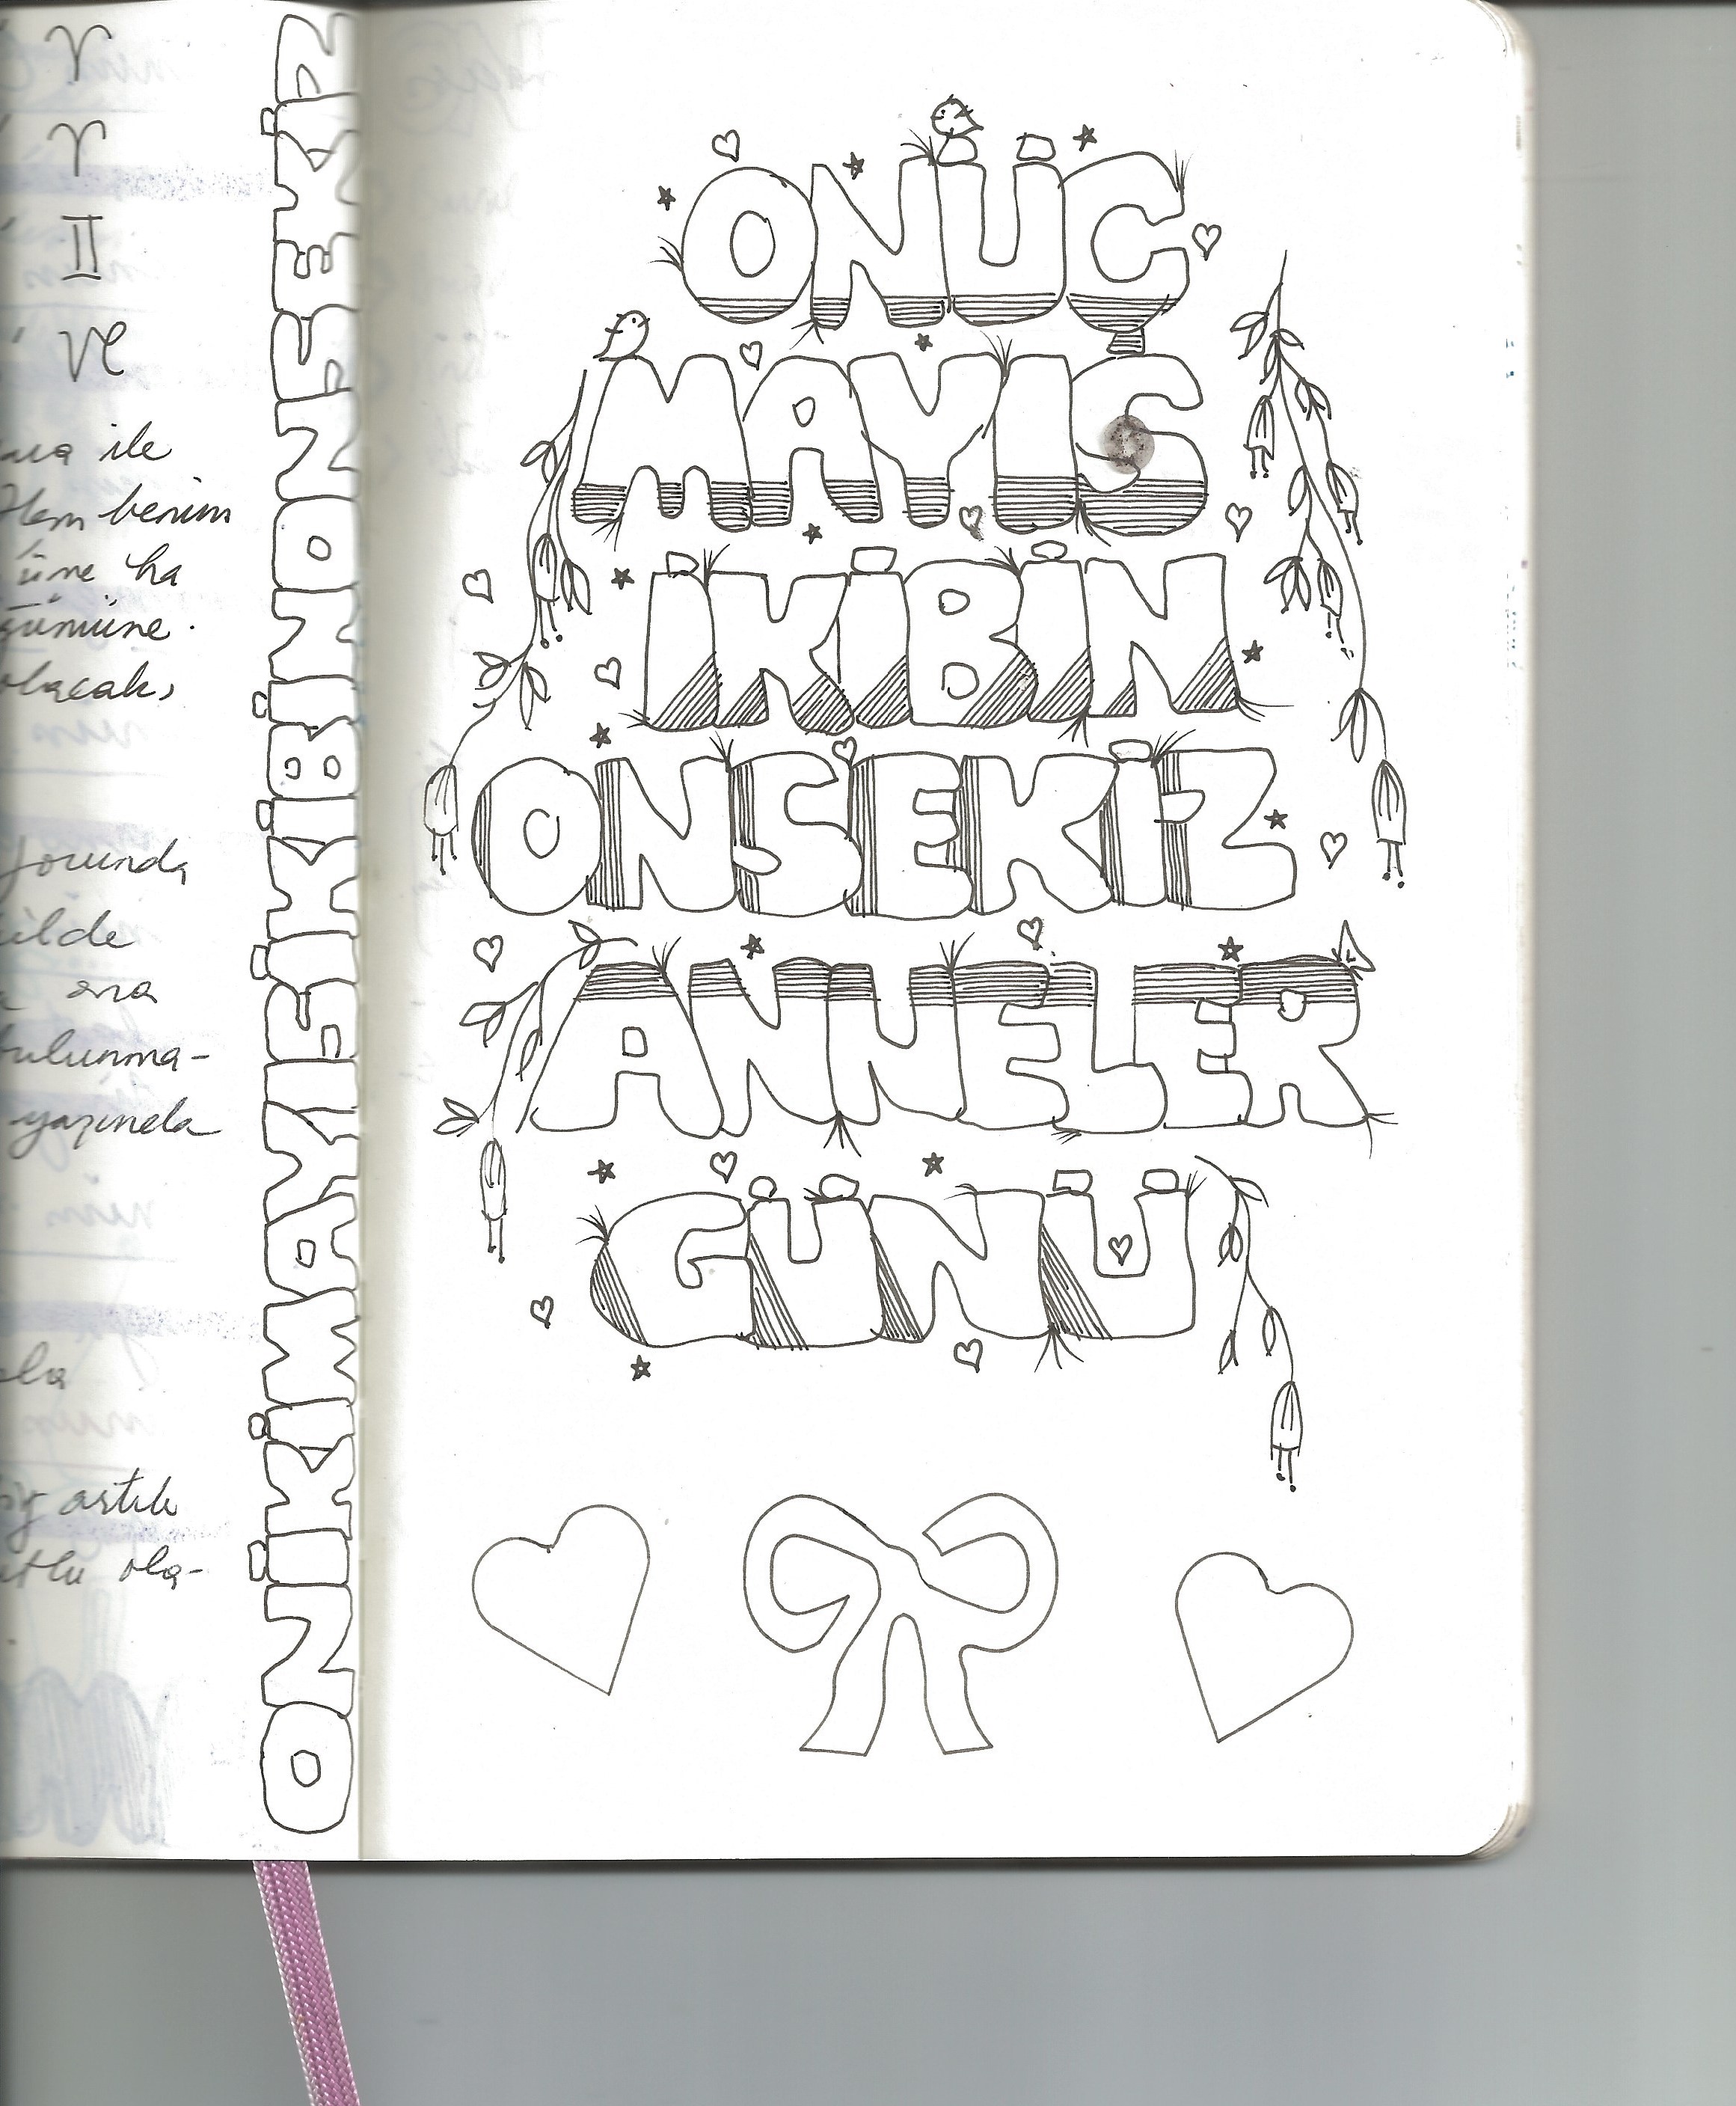 ♈
♈
♊
ve
ile
Hem benim
üne ha
gününe.
olacak,
forunda
ilde
ona
bulunma-
yazında
ola
artık
ola-
ONİKİMAYISİKİBİNONSEKİZ
ONÜÇ
MAYIS
İKİBİN
ONSEKİZ
ANNELER
GÜNÜ